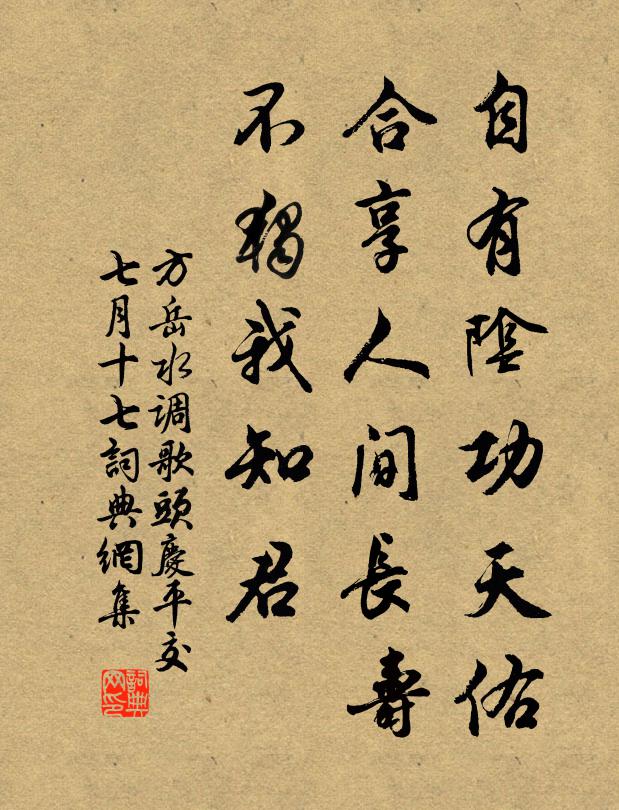 自有陰功天佑
合享人間長壽
不獨我知君
方岳水调歌頭慶平交
七月十七詞典網集
詞典网印